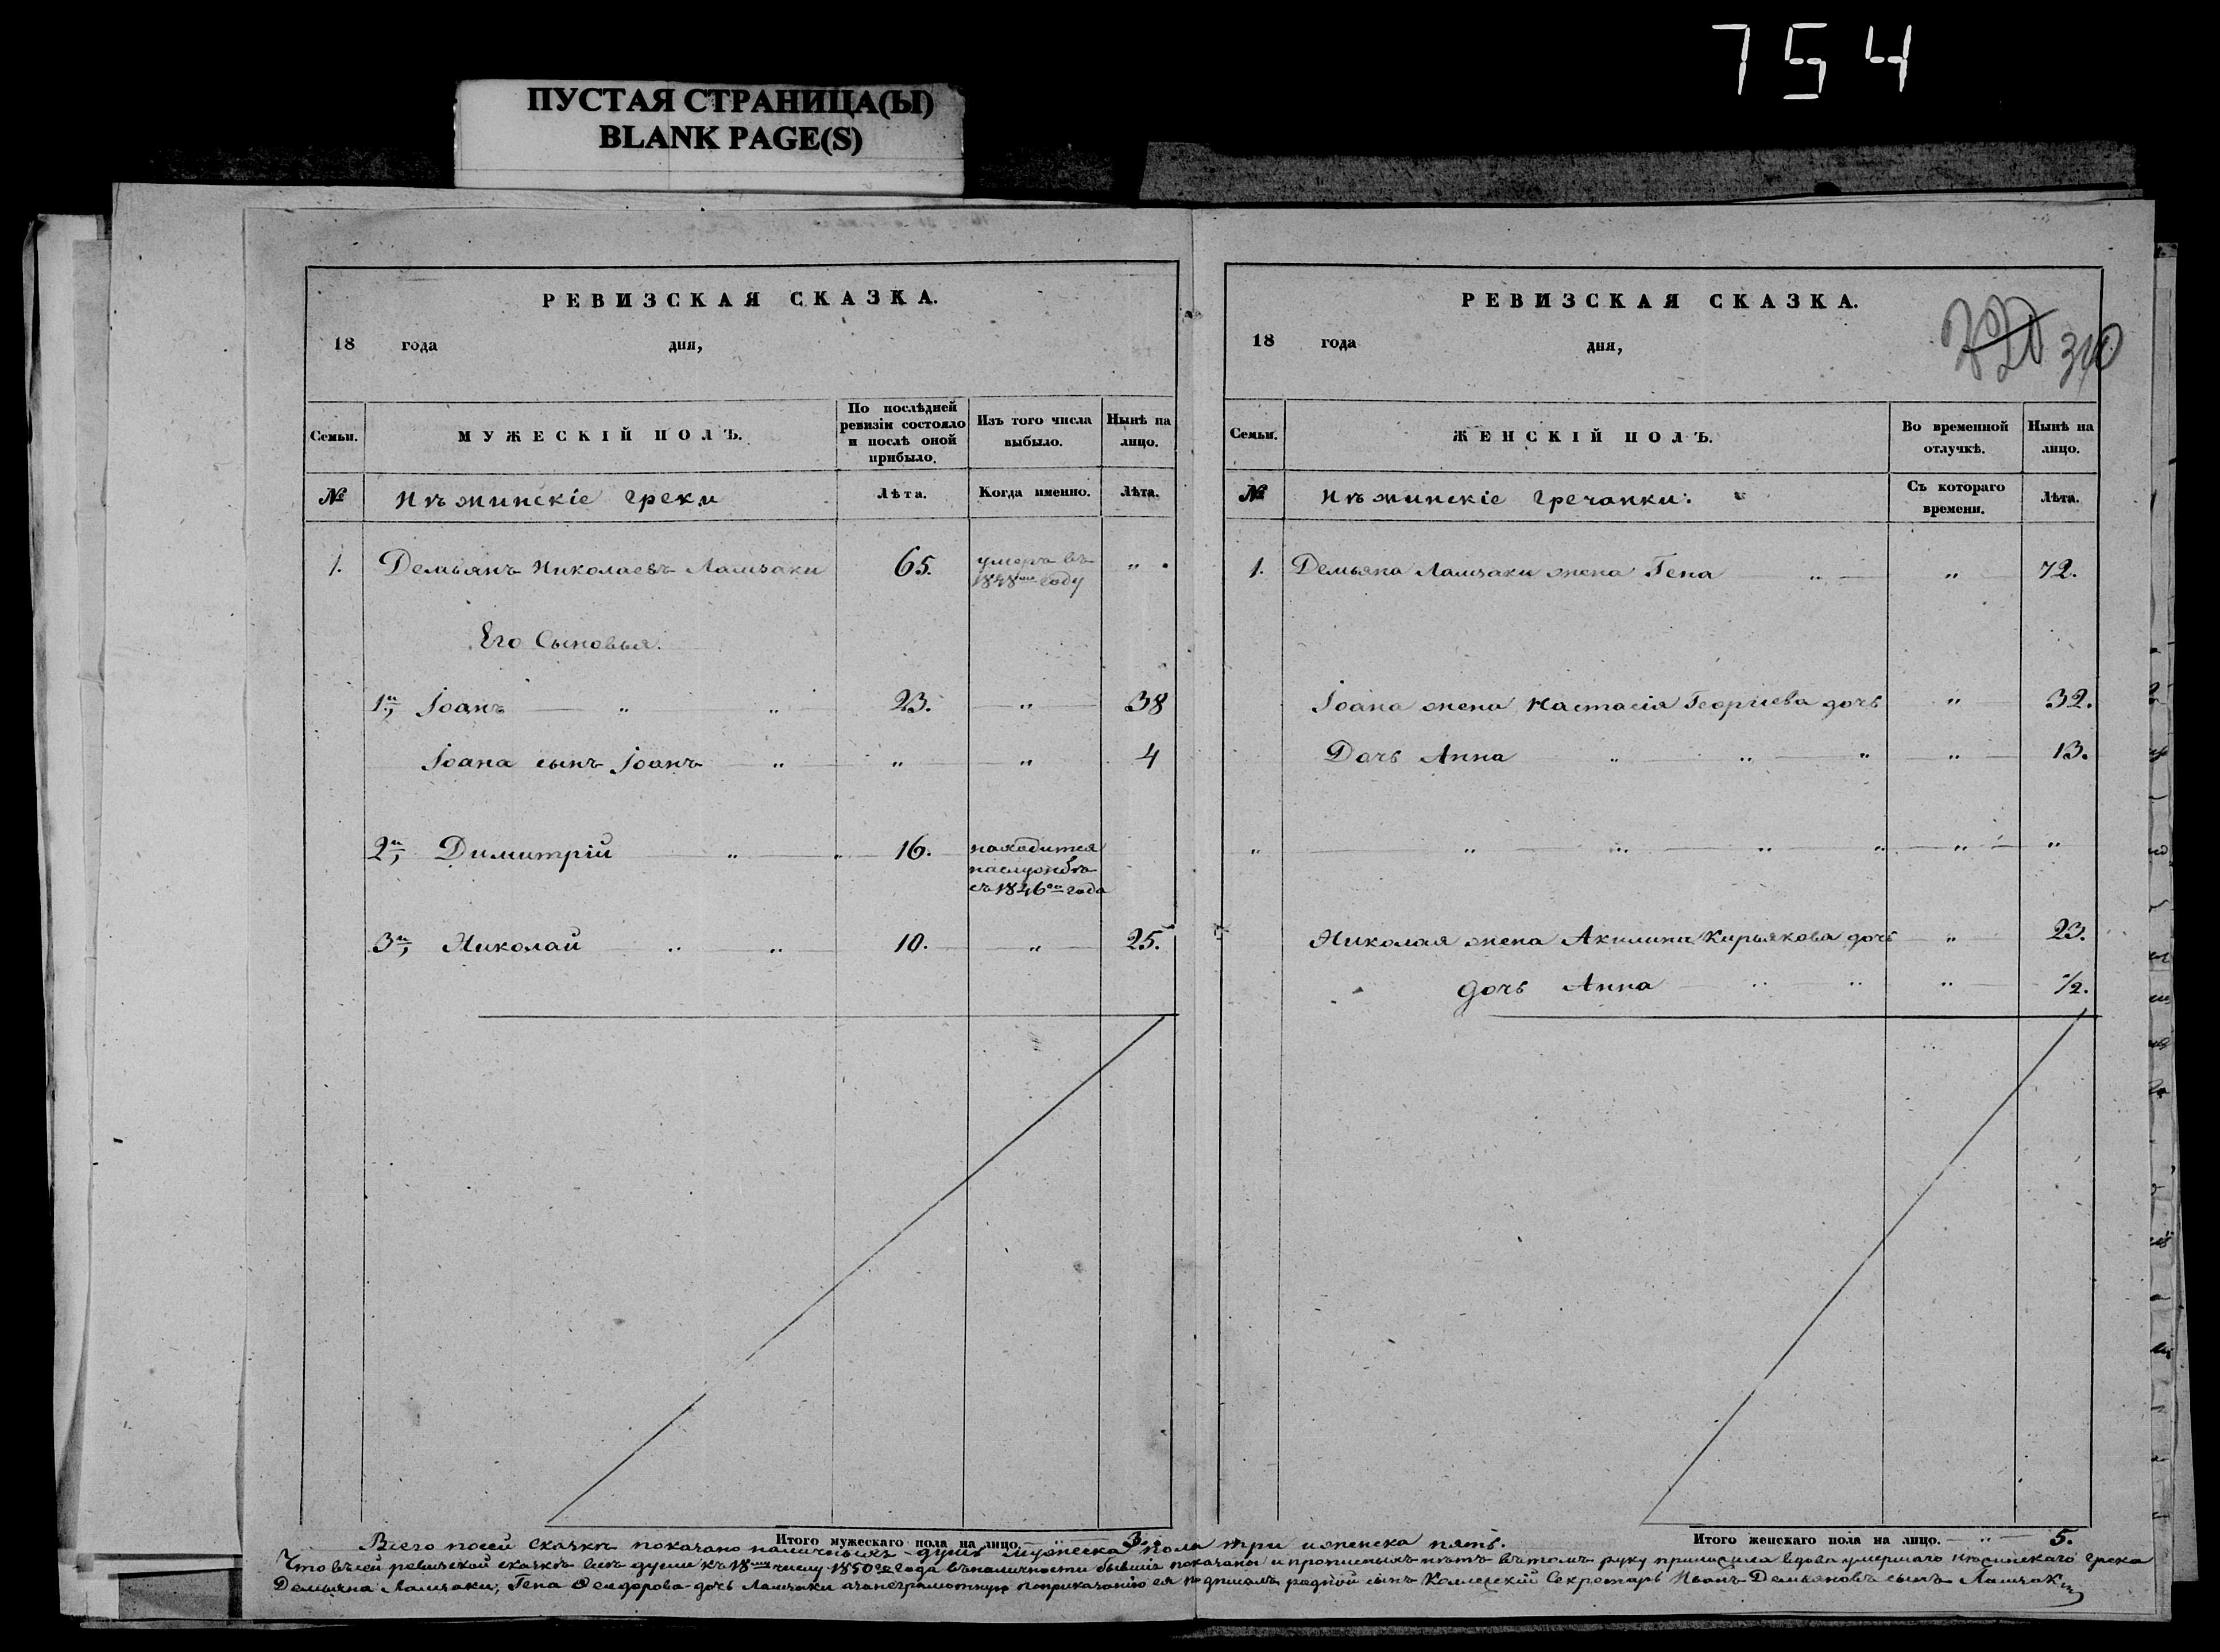 754
ПУСТАЯ СТРАНИЦА(Ы)
BLANK PAGE(S)
РЕВИЗСКАЯ СКАЗКА.
18 года дня,
Семьи. МУЖЕСКІЙ ПОЛЪ. По послѣдней ревизіи состояло и послѣ оной прибыло. Изъ того числа выбыло. Нынѣ на лицо.
№ Нѣжинскіе греки Лѣта. Когда именно. Лѣта.
1. Демьянъ Николаевъ Ламзаки 65. умеръ въ 1848мъ году „
Его Сыновья.
1й, Іоанъ „ „ 23. „ 38
Іоана сынъ Іоанъ „ „ „ 4
2й, Димитрій „ „ 16. находится на службѣ съ 1846го года
3й, Николай „ „ 10. „ 25.
Итого мужескаго пола на лицо. 3.
РЕВИЗСКАЯ СКАЗКА.
310
18 года дня,
Семьи. ЖЕНСКІЙ ПОЛЪ. Во временной отлучкѣ. Нынѣ на лицо.
№ Нѣжинскіе Гречанки: Съ котораго времени. Лѣта.
1. Демьяна Ламзаки жена Гена „ „ 72.
Іоана жена Настасія Георгіева дочь „ 32.
Дочь Анна „ „ „ „ 13.
„ „ „ „ „ „ „
Николая жена Акилина Кирьякова дочь „ 23.
дочь Анна „ „ „ 1/2.
Итого женскаго пола на лицо. „ 5.
Всего посей сказкѣ показано наличныхъ душъ мужеска пола три и женска пять.
Что въ сей ревизской сказкѣ всѣ души къ 18му числу 1850го года въ наличности бывшіе показаны и прописныхъ нѣтъ въ томъ руку приложила вдова умершаго нѣжинскаго грека
Демьяна Ламзаки, Гена Феодорова дочь Ламзаки а за неграмотную по приказанію ея подписалъ родной сынъ Коллежскій Секретарь Иванъ Демьяновъ сынъ Ламзаки